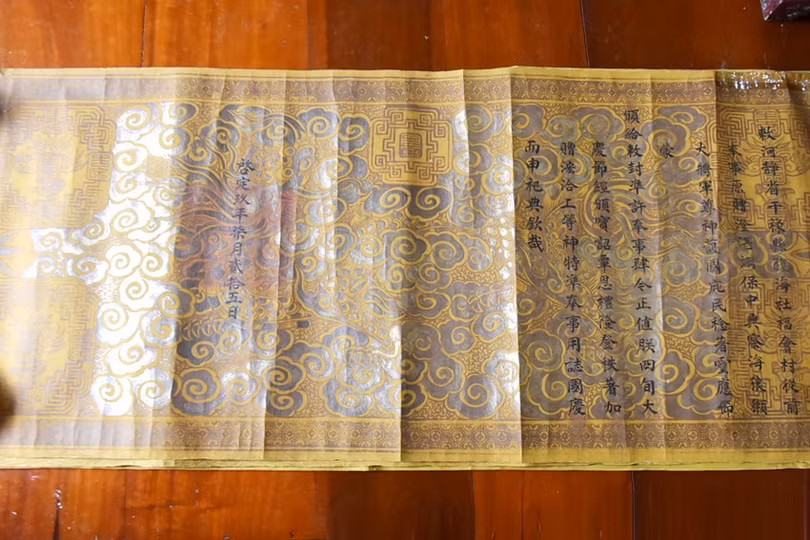 敕河静省干祿縣海社福會村從前
奉事原贈保中興海顯
大將軍尊神護國庇民稔著靈應節
蒙
頒給敕封準許奉事肆今正值朕四旬大
慶節經頒寶詔覃恩禮隆登秩著加
贈洽上等神特準奉事用誌國慶
而申祀典欽哉
啓定玖年柒月貳拾五日